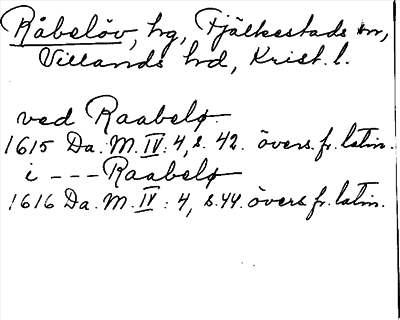 Råbelöv, hg, Fjälkestads sn,
Villands hd, Krist. l.
ved Raabelø.
1615 Da. M. IV: 4, s. 42. övers. fr. latin.
i --- Raabelø
1616 Da. M. IV: 4, s. 44. övers. fr. latin.